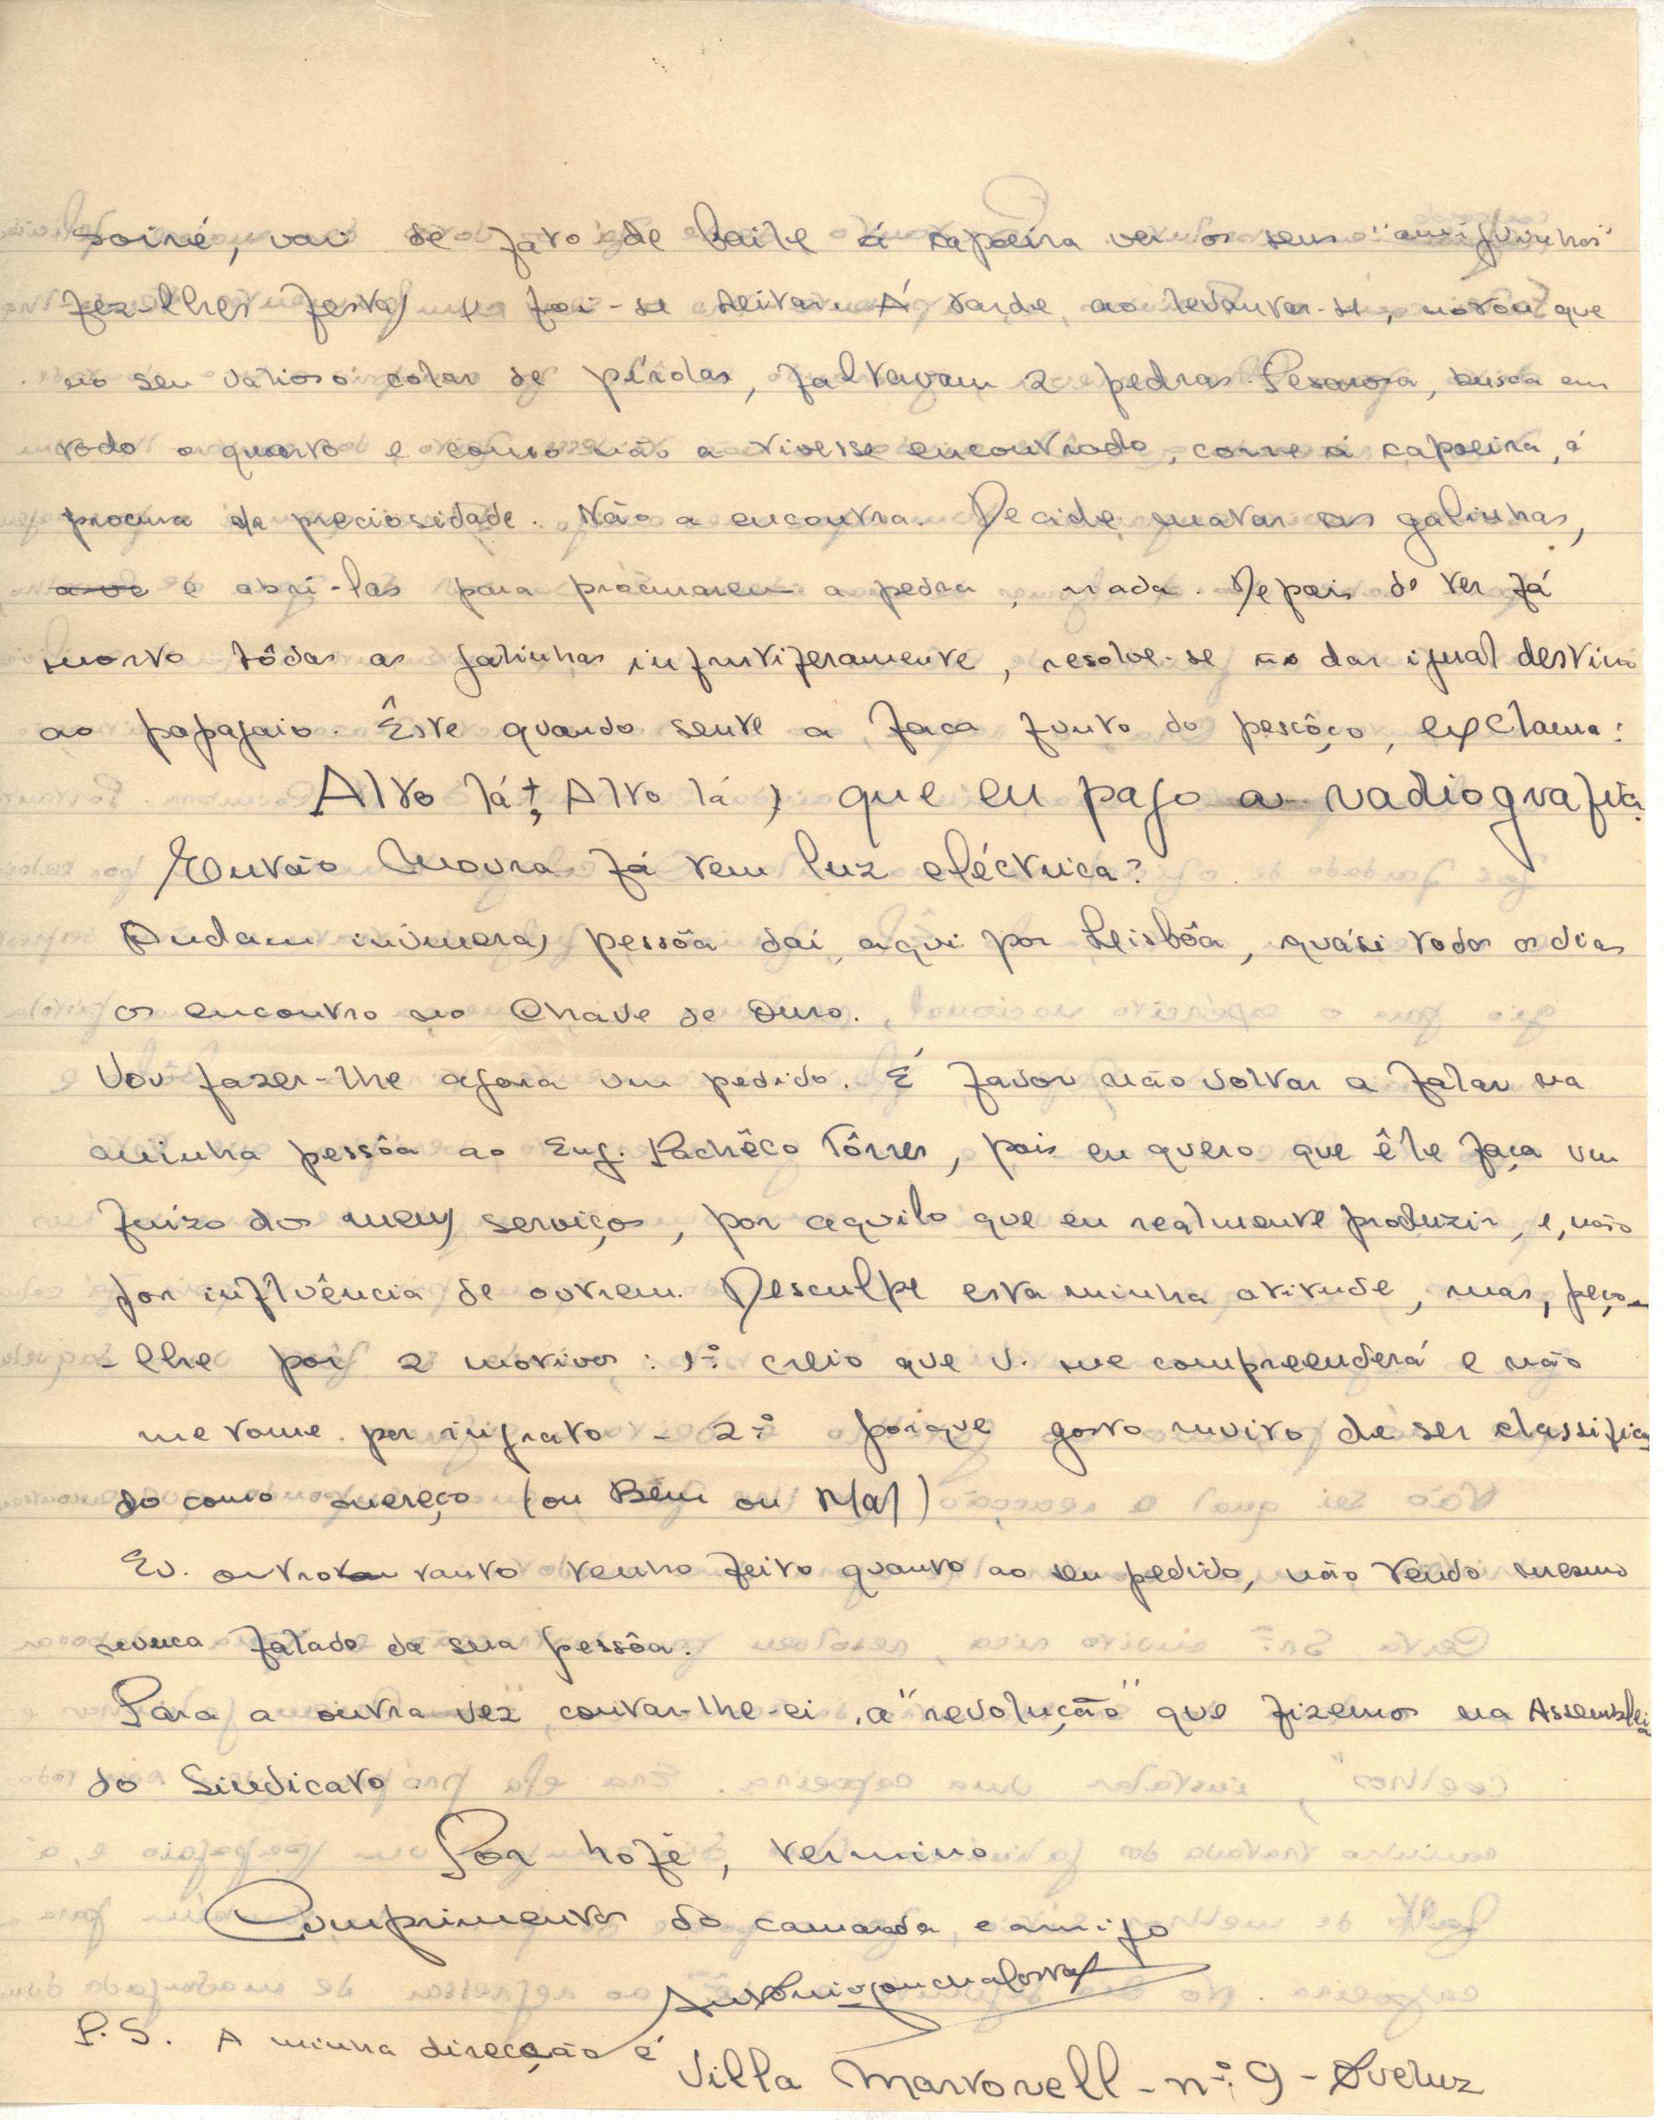 soiré, vai de fato de baile á capoeira ver os seus "amiguinhos"
fez-lhes festas e foi-se deitar. Á tarde, ao levantar-se, notou que
no seu valioso colar de pérolas, faltavam 2 pedras. Pesarosa, busca em
todo o quarto e como não a tivesse encontrado, corre á capoeira, á
procura da preciosidade. Não a encontra. Decide matar as galinhas,
e abri-las para procurarem a pedra, nada. Depois de ter já
morto tôdas as galinhas infrutiferamente, resolve-se dar igual destino
ao papagaio. Êste quando sente a faca junto do pescôço, exclama:
Alto lá, Alto lá, que eu pago a radiografia.
Então Moura já tem luz eléctrica?
Andam inúmeras pessôa daí, aqui por Leisbôa, quási todos os dias
os encontro no Chave de Ouro.
Vou fazer-lhe agora um pedido. É favor não voltar a falar na
minha pessôa ao Eng. Pachêco Tôrres, pois eu quero que êle faça um
juizo dos meus serviços, por aquilo que eu realmente produzir, e, não
por influência de outrem. Desculpe esta minha atitude, mas, peço-
-lhe por 2 motivos: 1º creio que V. me compreenderá e não
me tome por ingrato - 2º porque gosto muito de ser classifica
do como mereço (ou Bem ou Mal)
Eu outro tanto tenho feito quanto ao seu pedido, não tendo mesmo
nunca falado da sua pessôa.
Para a outra vez contar-lhe-ei a "revolução" que fizemos na Assembleia
do Sindicato
Por hoje, termino
Comprimentos do camarada e amigo
António
P.S. A minha direcção é
Villa Martorell - nº 9 - Queluz